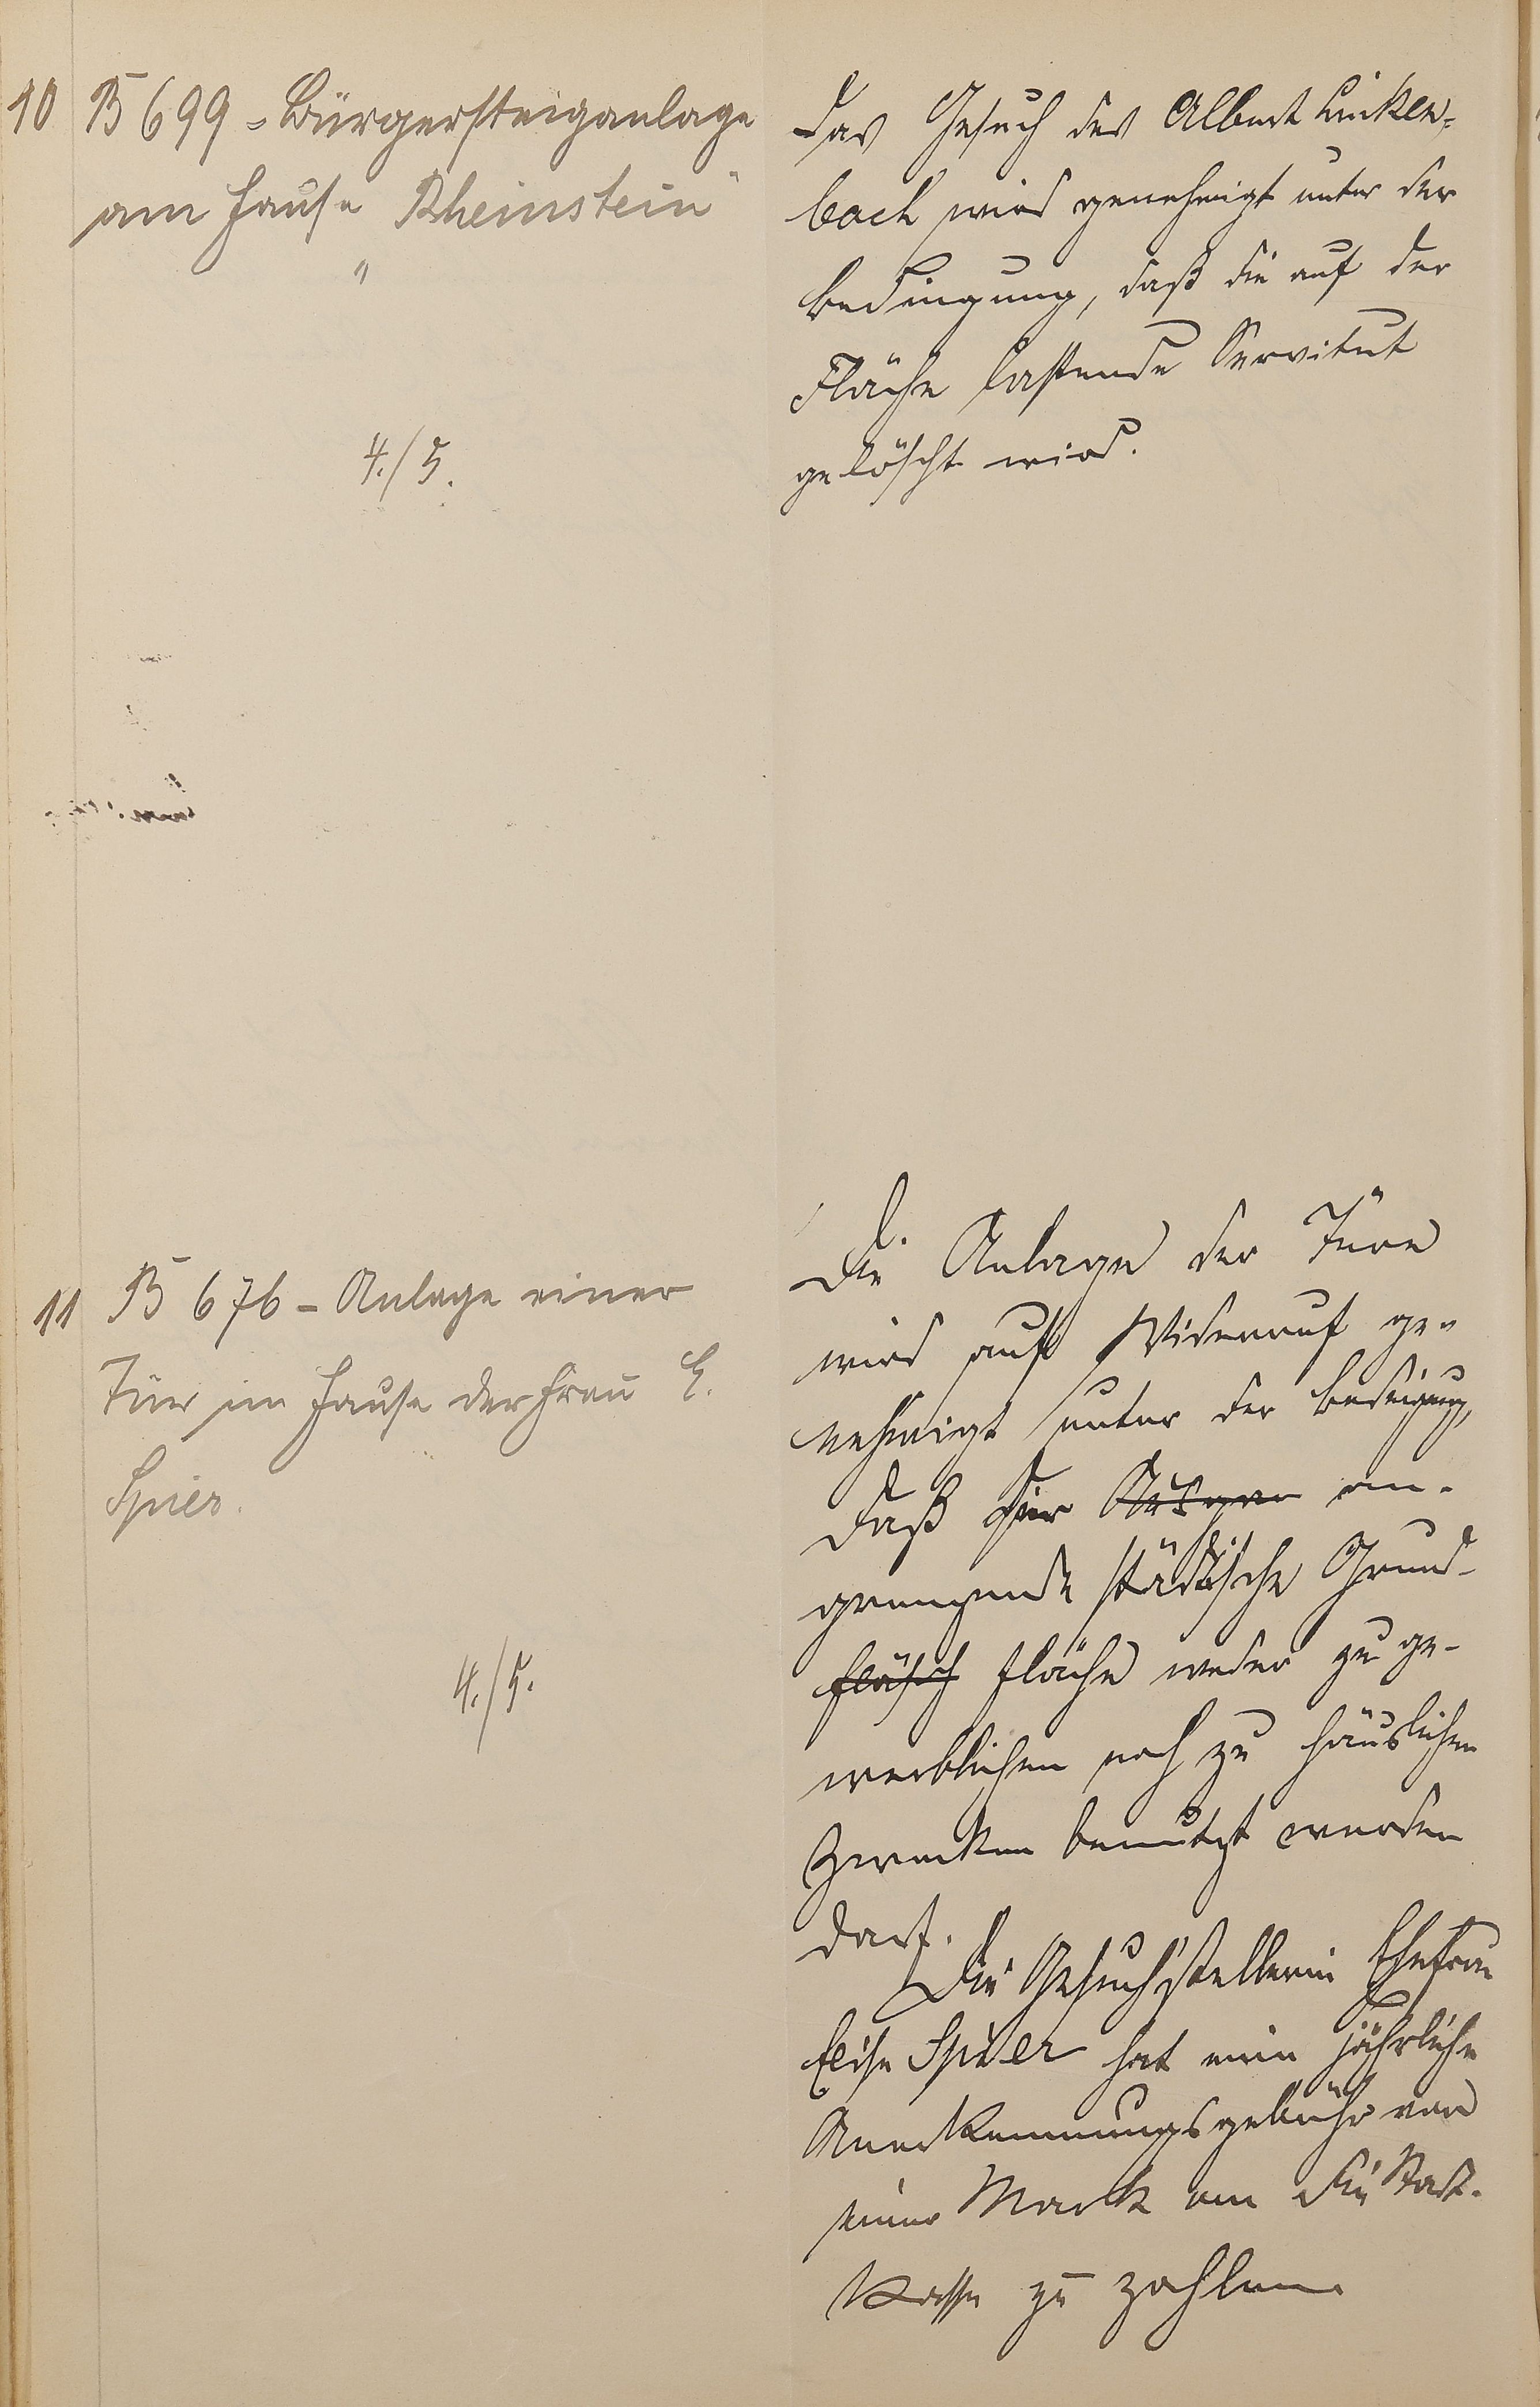 10 B 699 - Bürgersteiganlage
am Hause „Rheinstein"
4./5.
Das Gesuch des Albert Linken=
bach wird genehmigt unter der
Bedingung, daß die auf der
Fläche lastende Servitut
gelöscht wird.
11 B 676 - Anlage einer
Tür im Hause der Frau E.
Spier.
4./5.
Die Anlage der Türe
wird auf Widerruf ge-
nehmigt unter der Bedingung,
daß die an-
grenzende städtische Grund-
fläsch Fläche weder zu ge-
werblichen noch zu häuslichen
Zwecken benutzt werden
darf.
Die Gesuchstellerin Ehefrau
Elise Spier hat eine jährliche
Anerkennungsgebühr von
einer Mark an die Stadt-
Kasse zu zahlen.